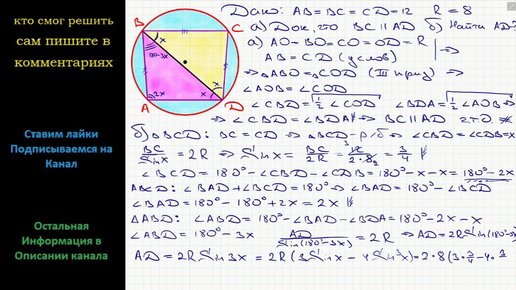 кто смог решить
сам пишите в
комментариях
Ставим лайки
Подписываемся на
Канал
Остальная
Информация в
Описании канала
B
C
A
D
x
180-3x
x
2x
x
Дано: AB=BC=CD=12 R=8
а) Док, что BC∥AD б) Найти AD?
а) AO=BO=CO=OD=R
AB=CD (услов) ⇒
⇒ △ABO=△COD (III призн) ⇒
∠AOB=∠COD
∠CBD=½∠COD ∠BDA=½∠AOB ⇒
⇒ ∠CBD=∠BDA ⇒ BC∥AD ч.т.д.
б) △BCD: BC=CD ⇒ △BCD-р/б ⇒ ∠CBD=∠CDB=x
BC/Sin x = 2R ⇒ Sin x = BC/2R = 12/2·8 = 3/4
∠BCD=180°-∠CBD-∠CDB=180°-x-x=180°-2x
ABCD: ∠BAD+∠BCD=180° ⇒ ∠BAD=180°-∠BCD
∠BAD=180°-180°+2x=2x
△ABD: ∠ABD=180°-∠BAD-∠BDA=180°-2x-x
∠ABD=180°-3x AD/Sin(180°-3x) = 2R ⇒ AD=2R Sin(180°-3x)
AD=2R Sin 3x = 2R(3 Sin x - 4 Sin³x)=2·8(3·3/4-4·3